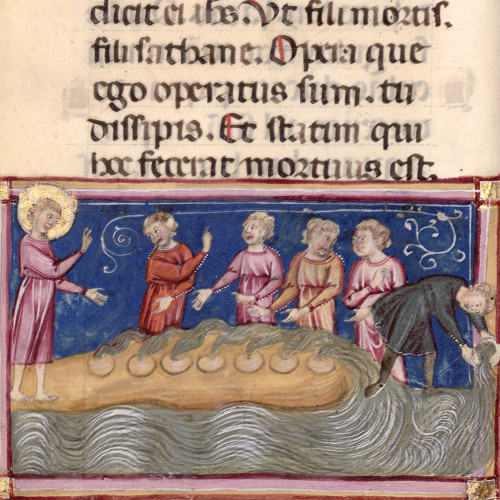 dicit ei ihs. Vt fili mortis.
fili sathane. Opera que
ego operatus sum. tu
dissipis. Et statim qui
hoc fecerat mortuus est.